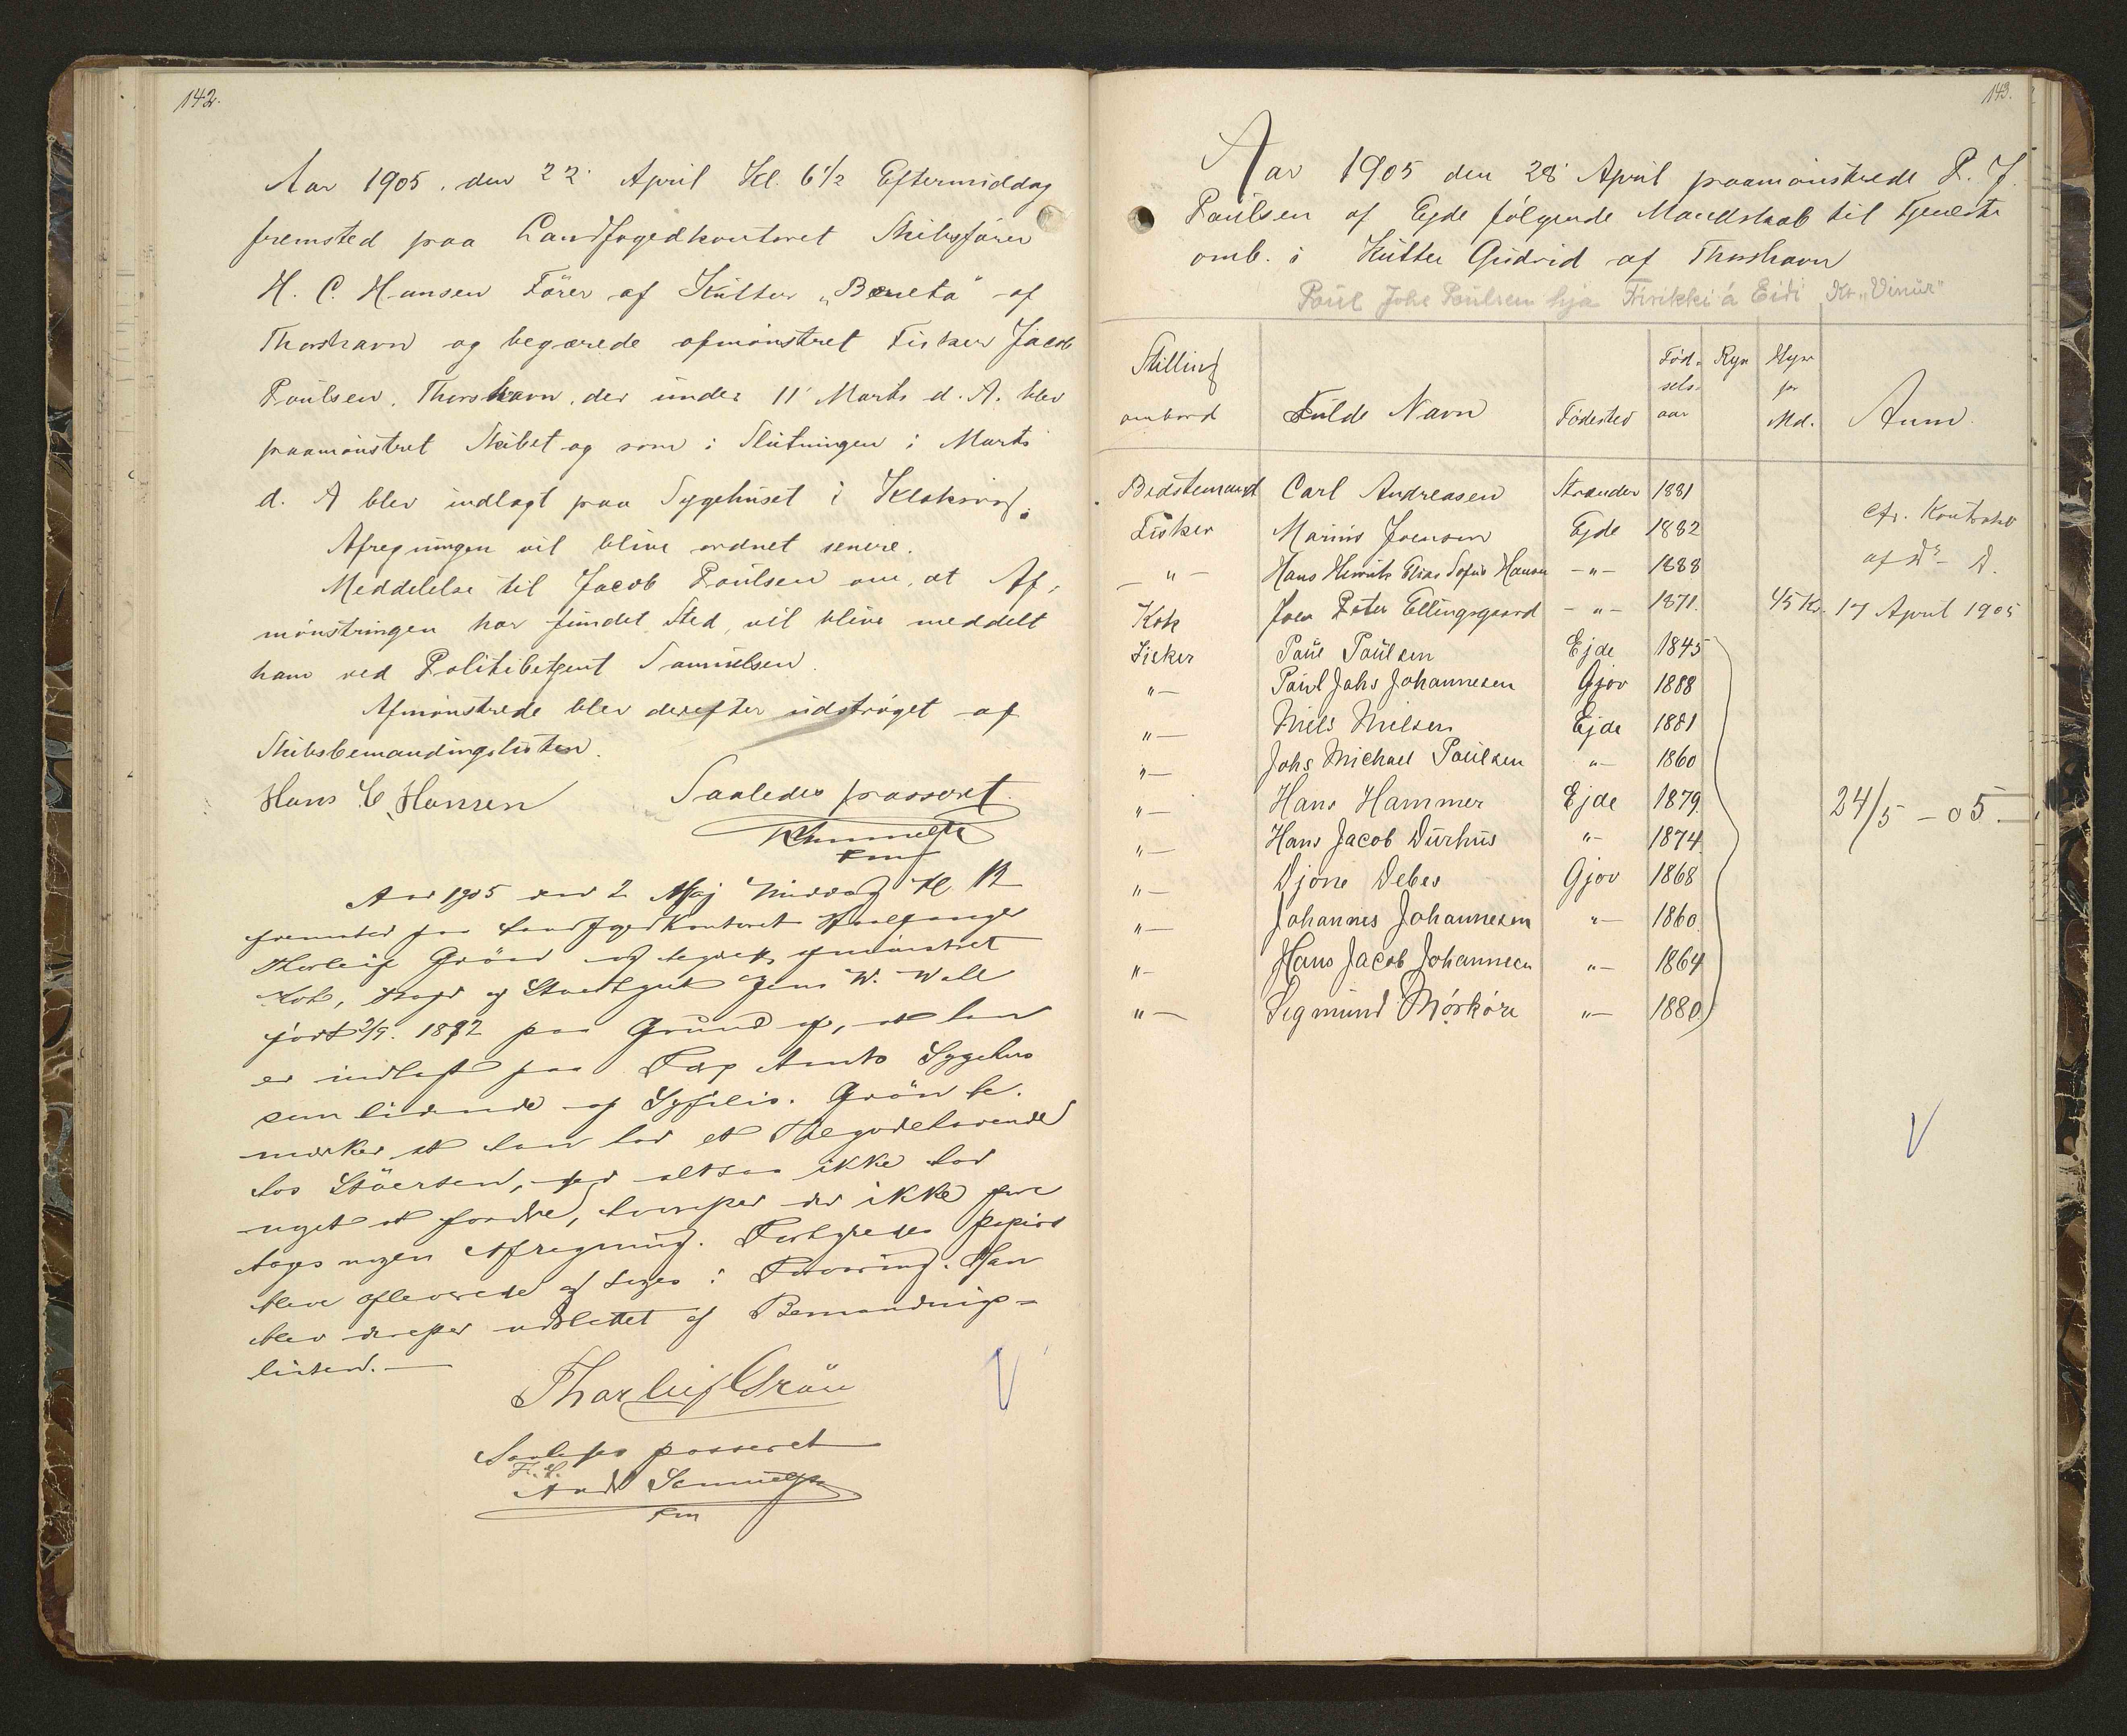 142.
Aar 1905. den 22' April Kl. 6 1/2 Eftermiddag
fremsted paa Landfogedkontoret Skibsfører
H. C. Hansen Fører af Kutter „Beneta" af
Thorshavn og begærede afmønstret Fisker Jacob
Poulsen. Thorshavn, der under 11' Marts d. A. blev
paamønstret Skibet og som i Slutningen i Marts
d. A blev indlagt paa Sygehuset i Klaksvig.
Afregningen vil blive ordnet senere.
Meddelelse til Jacob Poulsen om, at Af-
mønstringen har fundet Sted, vil blive meddelt
ham ved Politibetjent Samuelsen.
Afmønstrede blev derefter udstrøget af
Skibsbemandingslisten.
Hans C Hansen Saaledes passeret.
Aar 1905 den 2 Maj Middag Kl. 12
fremsted paa Landfogedkontoret Hvalfanger
Grön og afmønstret
Kok, og Jens W. Wall
født 2/9. 1872 paa Grund af, at han
er indlagt paa Færø Amts Sygehus
som lidende af Syfilis. Grön be-
mærker at han har et Tilgodehavende
hos Stöersen, altsaa ikke har
noget at fordre, hvorfor der ikke fore
tages nogen Afregning. papirer
bleve afleverede og tages i Forvaring. Han
blev derefter udslettet af Bemandings-
listen.
Thorleif Grön
Saaledes passeret
F. H.
And Samuelsen
fm
143.
Aar 1905 den 28' April paamønstrede P. J.
Poulsen af Ejde følgende Mandskab til Tjeneste
omb. i Kutter Gudrid af Thorshavn
Poul Johs Poulsen hja Fririkki á Eidi Kt „Vinur"
Stilling Fød- Hyre
sels- pr
ombord Fulde Navn Fødested aar Md. Anm.
Bedstemand Carl Andreasen Strænder 1881
Fisker Marius Joensen Ejde 1882 cfr. Kontrakt
— " — Hans Henrik Elias Sofus Hansen — " — 1888 af Ds. D.
Kok Joen Peter Ellingsgaard — " — 1871. 45 Kr. 17 April 1905
Fisker Poul Poulsen Ejde 1845
"— Poul Johs Johannesen Gjov 1888
"— Niels Nielsen Ejde 1881
"— Johs Michael Poulsen "— 1860
"— Hans Hammer Ejde 1879. 24/5 – 05
"— Hans Jacob Durhuus "— 1874.
"— Djóne Debes Gjov 1868
"— Johannes Johannesen "— 1860.
"— Hans Jacob Johannesen "— 1864
"— Segmund Mørkøre "— 1880.